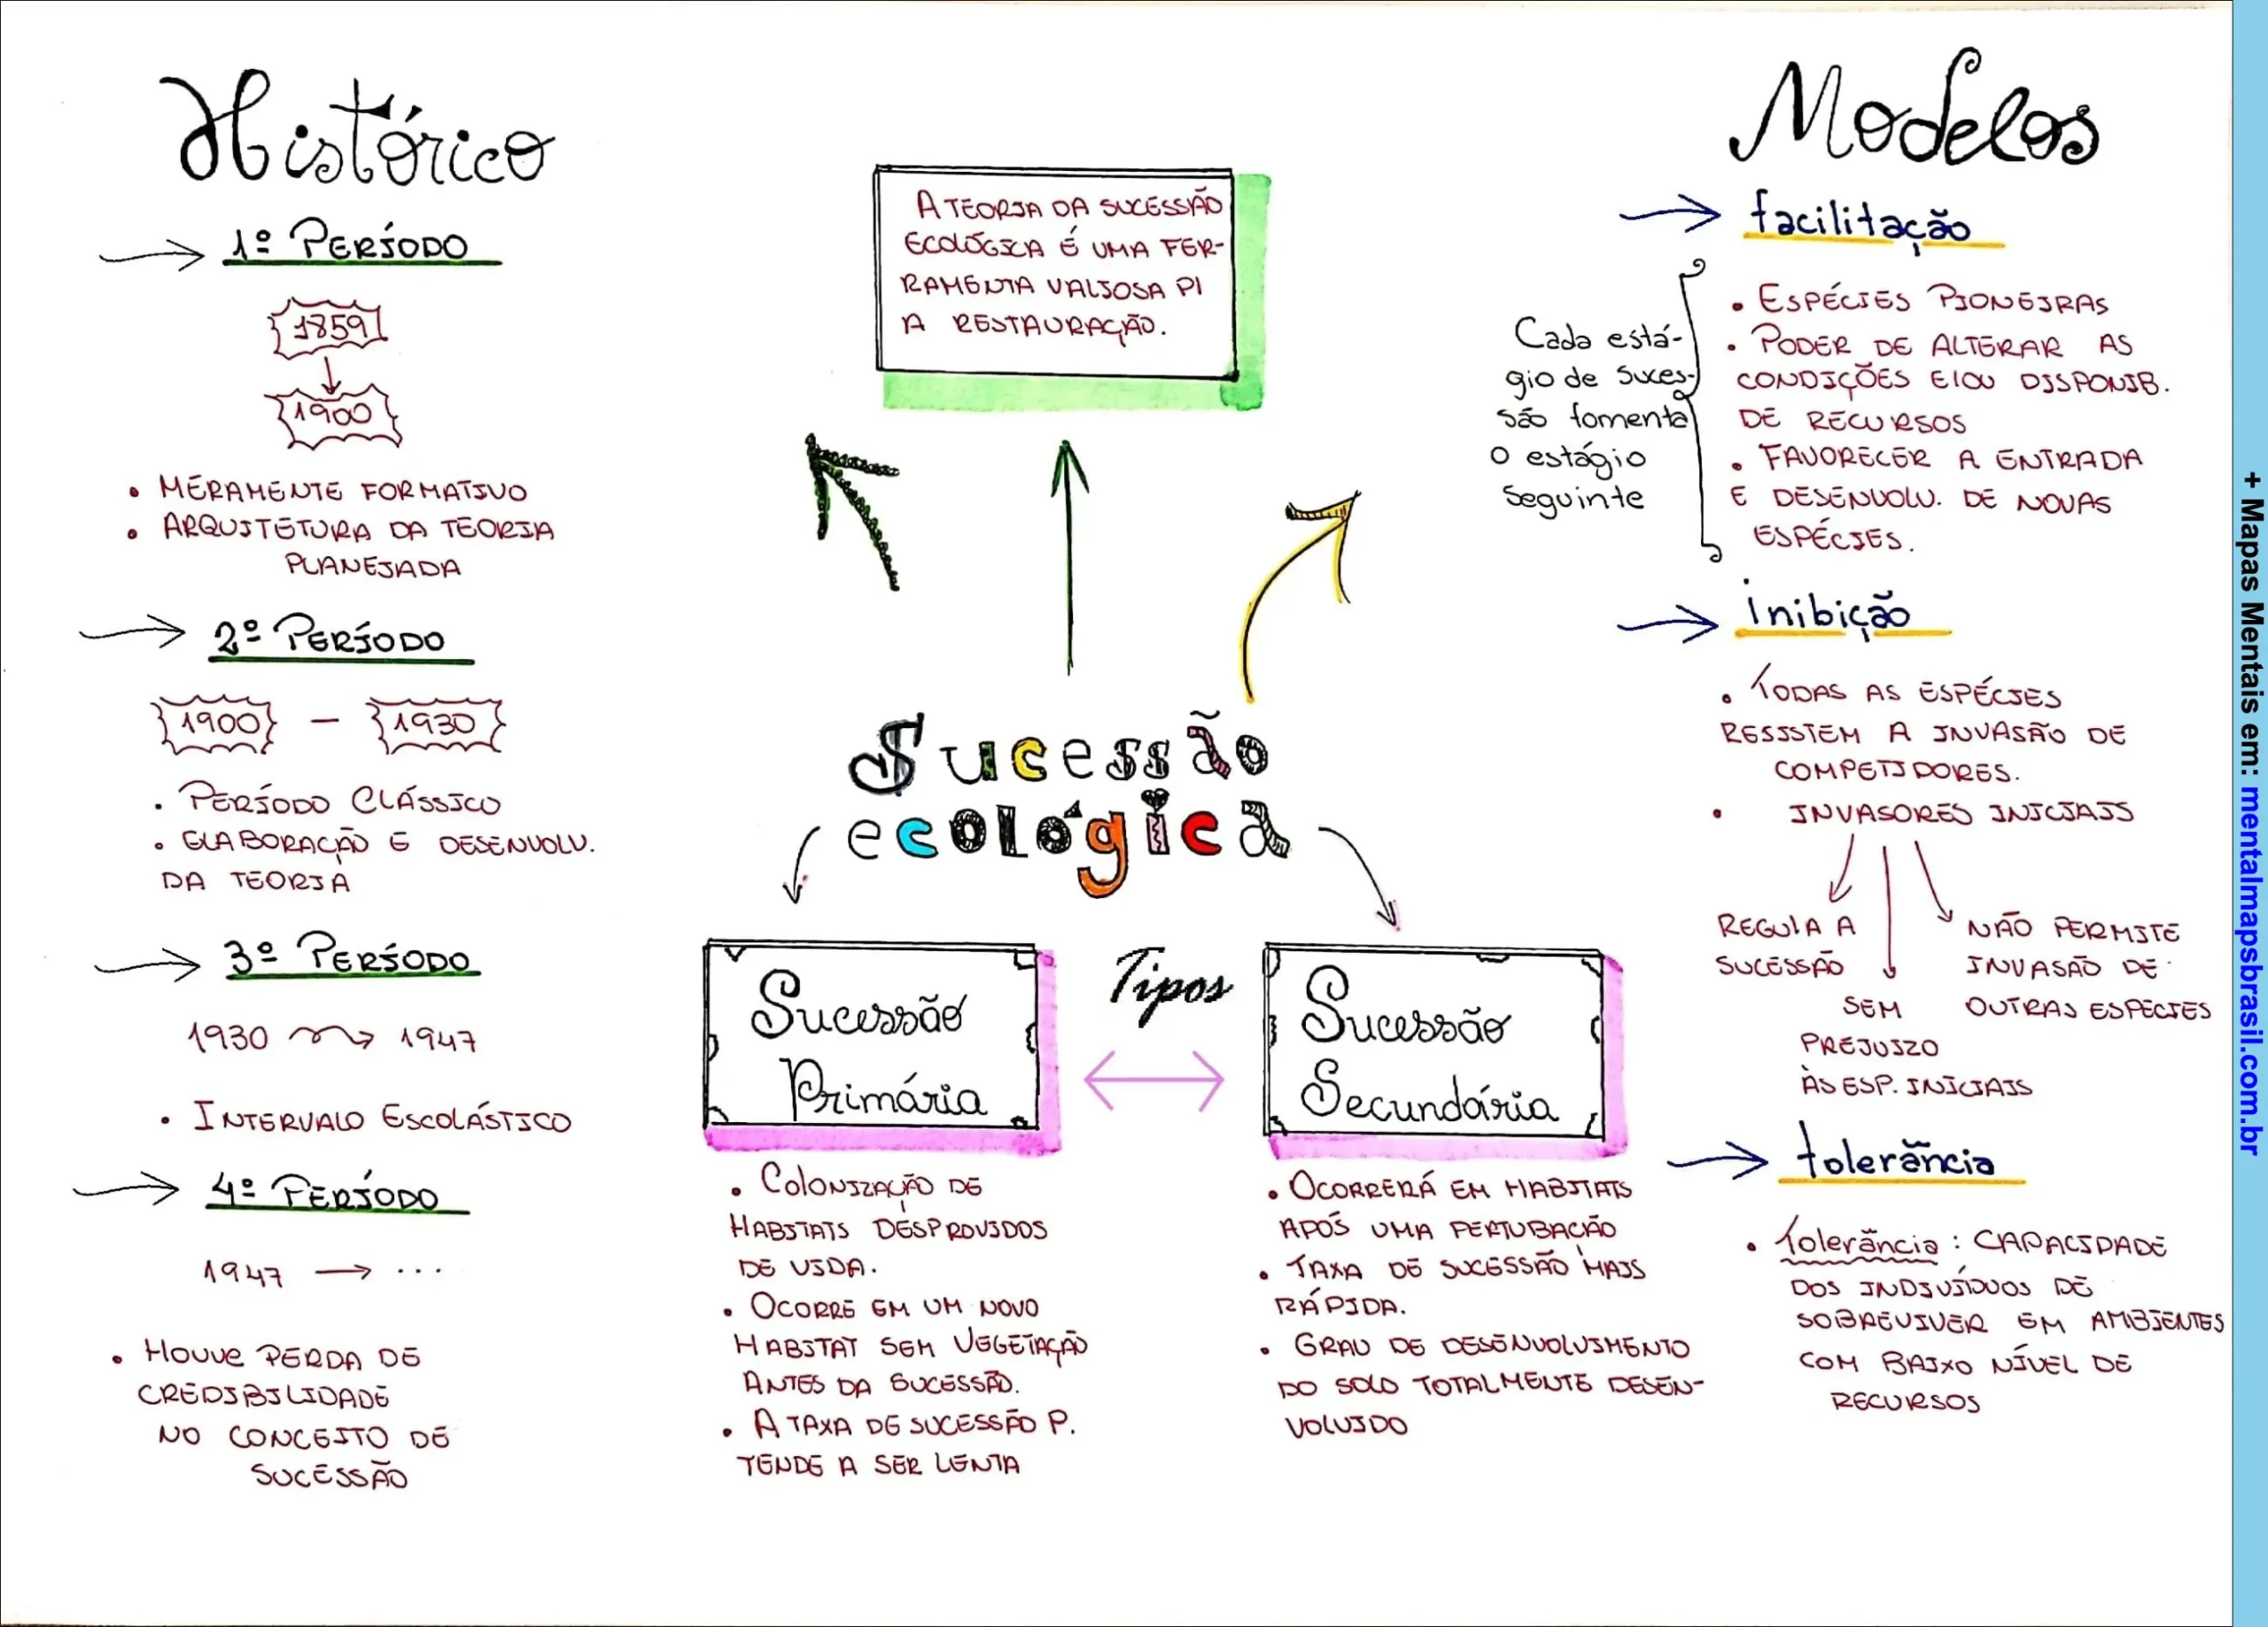 Histórico
1º PERÍODO
1859
1900
• MERAMENTE FORMATIVO
• ARQUITETURA DA TEORIA
PLANEJADA
2º PERÍODO
1900 – 1930
• PERÍODO CLÁSSICO
• ELABORAÇÃO E DESENVOLV.
DA TEORIA
3º PERÍODO
1930 → 1947
• INTERVALO ESCOLÁSTICO
4º PERÍODO
1947 → ...
• HOUVE PERDA DE
CREDIBILIDADE
NO CONCEITO DE
SUCESSÃO
A TEORIA DA SUCESSÃO
ECOLÓGICA É UMA FER-
RAMENTA VALIOSA P/
A RESTAURAÇÃO.
Sucessão
ecológica
Tipos
Sucessão
Primária
• COLONIZAÇÃO DE
HABITATS DESPROVIDOS
DE VIDA.
• OCORRE EM UM NOVO
HABITAT SEM VEGETAÇÃO
ANTES DA SUCESSÃO.
• A TAXA DE SUCESSÃO P.
TENDE A SER LENTA
Sucessão
Secundária
• OCORRERÁ EM HABITATS
APÓS UMA PERTUBAÇÃO
• TAXA DE SUCESSÃO MAIS
RÁPIDA.
• GRAU DE DESENVOLVIMENTO
DO SOLO TOTALMENTE DESEN-
VOLVIDO
Modelos
facilitação
Cada está-
gio de suces-
são fomenta
o estágio
seguinte
• ESPÉCIES PIONEIRAS
• PODER DE ALTERAR AS
CONDIÇÕES E/OU DISPONIB.
DE RECURSOS
• FAVORECER A ENTRADA
E DESENVOLV. DE NOVAS
ESPÉCIES.
inibição
• TODAS AS ESPÉCIES
RESISTEM A INVASÃO DE
COMPETIDORES.
• INVASORES INICIAIS
REGULA A
SUCESSÃO
SEM
PREJUIZO
ÀS ESP. INICIAIS
NÃO PERMITE
INVASÃO DE
OUTRAS ESPÉCIES
tolerância
• Tolerância: CAPACIDADE
DOS INDIVÍDUOS DE
SOBREVIVER EM AMBIENTES
COM BAIXO NÍVEL DE
RECURSOS
+ Mapas Mentais em: mentalmapsbrasil.com.br